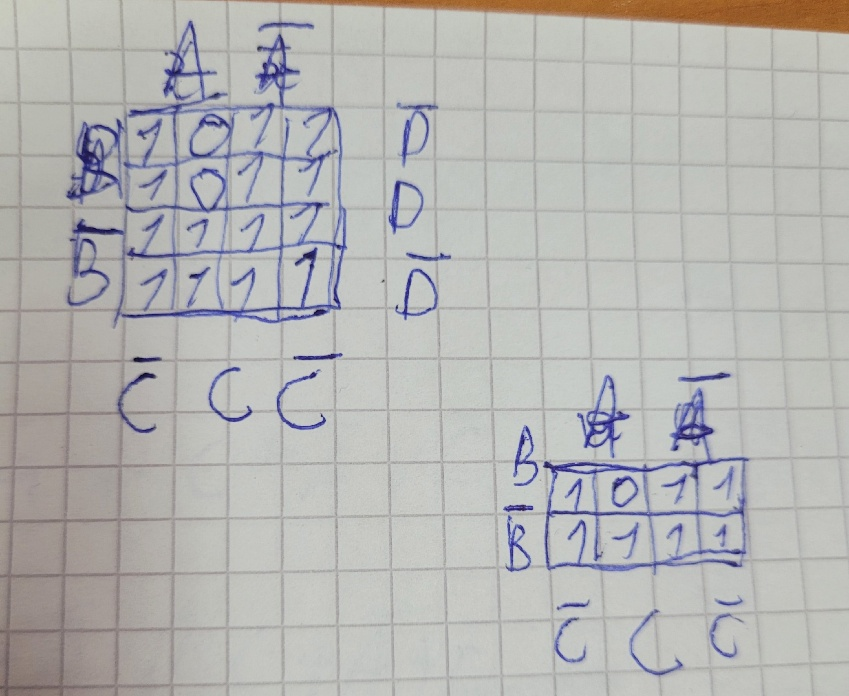 A A̅
B 1 0 1 1 D̅
1 0 1 1 D
B̅ 1 1 1 1
1 1 1 1 D̅
C̅ C C̅
A A̅
B 1 0 1 1
B̅ 1 1 1 1
C̅ C C̅